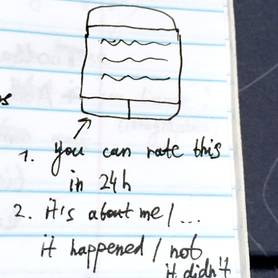 1. you can rate this
in 24h
2. it's about me / ...
it happened / not
it didn't